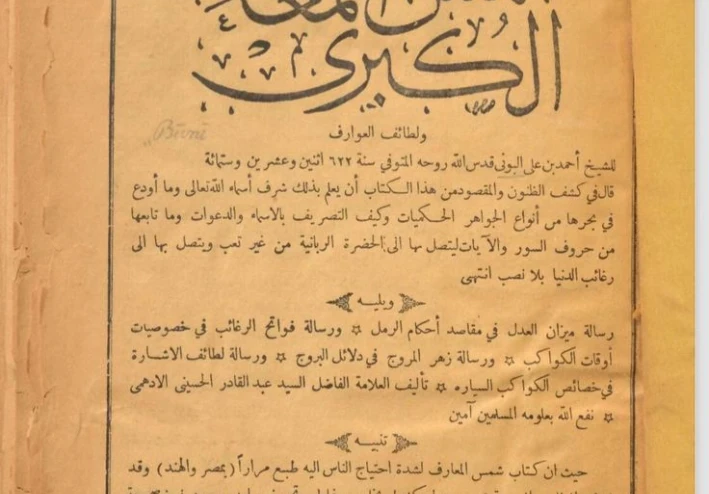 الكبرى
ولطائف العوارف
Būnī
للشيخ أحمد بن على البونى قدس الله روحه المتوفي سنة ٦٢٢ اثنين وعشرين وستمائة
قال في كشف الظنون والمقصود من هذا الكتاب أن يعلم بذلك شرف أسماء الله تعالى وما أودع
في بحرها من أنواع الجواهر الحكميات وكيف التصريف بالاسماء والدعوات وما تابعها
من حروف السور والآيات ليتصل بها الى الحضرة الربانية من غير تعب ويتصل بها الى
رغائب الدنيا بلا نصب انتهى
ويليه
رسالة ميزان العدل في مقاصد أحكام الرمل ¤ ورسالة فواتح الرغائب في خصوصيات
أوقات الكواكب ¤ ورسالة زهر المروج في دلائل البروج ¤ ورسالة لطائف الاشارة
في خصائص الكواكب السياره ¤ تأليف العلامة الفاضل السيد عبد القادر الحسينى الادهمى
¤ نفع الله بعلومه المسلمين آمين
تنبيه
حيث ان كتاب شمس المعارف لشدة احتياج الناس اليه طبع مراراً (بمصر والهند) وقد